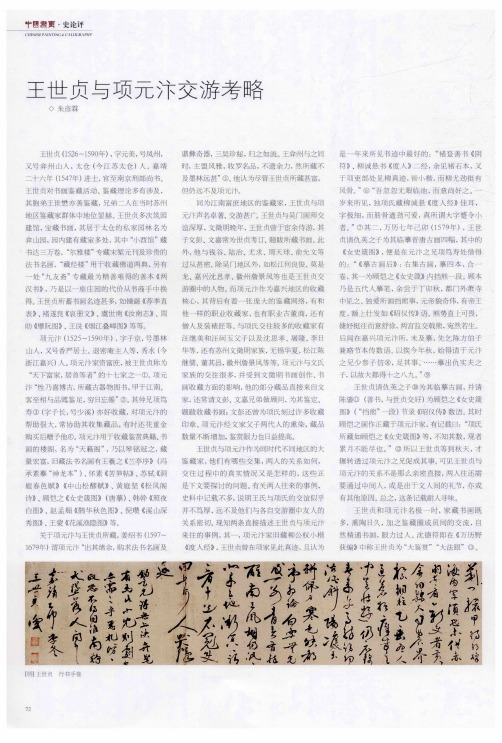 中国书画·史论评
CHINESE PAINTING & CALLIGRAPHY
王世贞与项元汴交游考略
◇ 朱彦霖
王世贞(1526~1590年),字元美,号凤州,
又号弇州山人,太仓(今江苏太仓)人。嘉靖
二十六年(1547年)进士,官至南京刑部尚书。
王世贞对书画鉴藏活动、鉴藏理论多有涉及,
其胞弟王世懋亦善鉴藏,兄弟二人在当时苏州
地区鉴藏家群体中地位显赫。王世贞多次筑园
建馆,宝藏书画,其居于太仓的私家园林名为
弇山园,园内建有藏宝多处,其中“小酉馆”藏
书达三万卷,“尔雅楼”专藏宋椠元刊及珍贵的
法书名画,“藏经楼”用于收藏佛道两典,另有
一处“九友斋”专藏最为精善难得的善本《两
汉书》,乃是以一座庄园的代价从书商手中换
得。王世贞所蓄书画名迹甚多,如钟繇《荐季直
表》、褚遂良《哀册文》、虞世南《汝南志》、周
昉《听阮图》、王诜《烟江叠嶂图》等等。
项元汴(1525~1590年),字子京,号墨林
山人,又号香严居士、退密斋主人等,秀水(今
浙江嘉兴)人。项元汴家资富庶,被王世贞称为
“天下富家,居首等者”的十七家之一①。项元
汴“性乃喜博古,所藏古器物图书,甲于江南,
富至相与品骘鉴定,穷日忘倦”②。其仲兄项笃
寿③(字子长,号少溪)亦好收藏,对项元汴的
帮助很大,常协助其收集藏品,有时还花重金
购买后赠予他④。项元汴用于收藏鉴赏典籍、书
画的楼阁,名为“天籁阁”,乃以琴铭冠之,藏
量宏富,旧藏法书名画有王羲之《兰亭序》(冯
承素摹“神龙本”)、怀素《苦笋帖》、苏轼《洞
庭春色赋》《中山松醪赋》、黄庭坚《松风阁
诗》、顾恺之《女史箴图》(唐摹)、韩幹《照夜
白图》、赵孟頫《鹊华秋色图》、倪瓒《溪山深
秀图》、王蒙《花溪渔隐图》等。
关于项元汴与王世贞所藏,姜绍书(1597—
1679年)谓项元汴“出其绪余,购求法书名画及
鼎彝奇器,三吴珍秘,归之如流。王弇州与之同
时,主盟风雅,收罗名品,不遗余力,然所藏不
及墨林远甚”⑤。他认为尽管王世贞所藏甚富,
但仍远不及项元汴。
同为江南富庶地区的鉴藏家,王世贞与项
元汴声名卓著,交游甚广。王世贞与吴门画师交
谊深厚,文徵明晚年,王世贞尝于官余侍游,其
子文彭、文嘉常为世贞考订、题跋所藏书画。此
外,他与莫谷、陆治、尤求、周天球、俞允文等
过从甚密,除吴门地区外,如松江何良俊、莫是
龙,嘉兴沈恩孝,徽州詹景凤等也是王世贞交
游圈中的人物。而项元汴作为嘉兴地区的收藏
核心,其背后有着一张庞大的鉴藏网络,有和
他一样的职业收藏家,也有职业古董商,还有
僧人及装裱匠等。与项氏交往较多的收藏家有
汪继美和汪砢玉父子以及沈思孝、屠隆、李日
华等,还有苏州文徵明家族,无锡华夏,松江陈
继儒、董其昌,徽州詹景凤等等。项元汴与文氏
家族的交往很多,并受到文徵明书画创作、书
画收藏方面的影响,他的部分藏品直接来自文
家,还常请文彭、文嘉兄弟做顾问,为其鉴定、
题跋收藏书画,文彭还曾为项氏刻过许多收藏
印章。项元汴经文家父子两代人的熏染,藏品
数量不断增加,鉴赏眼力也日益提高。
王世贞与项元汴作为同时代不同地区的大
鉴藏家,他们有哪些交集,两人的关系如何,
交往过程中的真实情况又是怎样的,这些正
是下文要探讨的问题。有关两人往来的事例,
史料中记载不多,说明王氏与项氏的交谊似乎
并不笃厚,远不及他们与各自交游圈中友人的
关系密切,现知两条直接描述王世贞与项元汴
来往的事例。其一,项元汴家旧藏柳公权小楷
《度人经》,王世贞曾在项家见此真迹,且认为
是一年来所见书迹中最好的:“褚登善书《阴
符》,柳诚悬书《度人》二经,余见褚石本,又
于项吏部处见柳真迹,皆小楷,而柳尤遒挺有
风骨。”⑥“吾忽忽无聊临池,而意尚好之。一
岁来所见,独项氏藏柳诚悬《度人经》佳耳,
字极细,而筋骨遒劲可爱,真所谓大字难令小
者。”⑦其二,万历七年己卯(1579年),王世
贞请仇英之子为其临摹晋唐古画四幅,其中的
《女史箴图》,便是在元汴之兄项笃寿处借得
的:“《摹古画后》:右集古画,摹四本,合一
卷。其一为顾恺之《女史箴》内挡熊一段。顾本
乃是五代人摹笔,余尝于丁卯秋,都门外萧寺
中见之,独爱所画挡熊事,元帝貌奇伟,有帝王
度,额上什发如《昭仪传》语,顾势直上可畏,
婕妤挺往而意舒徐,两宫监交戟熊,宛然若生。
后闻在嘉兴项元汴所,未及摹,先之陈方伯子
兼赂节本传数语,以俟今年秋,始得请于元汴
之兄少参子信录,足其事,……摹出仇实夫之
子,以故大都得十之八九。”⑧
王世贞请仇英之子⑨为其临摹古画,并请
陈鎏⑩(善书,与世贞交好)为顾恺之《女史箴
图》(“挡熊”一段)节录《昭仪传》数语,其时
顾恺之画作正藏于项元汴家,有记载曰:“项氏
所藏如顾恺之《女史箴图》等,不知其数,观者
累月不能尽也。”⑪所以王世贞等到秋天,才
辗转通过项元汴之兄促成其事,可见王世贞与
项元汴的关系不是那么亲密直接,两人往还需
要通过中间人,或是出于文人间的礼节,亦或
有其他原因。总之,这条记载耐人寻味。
王世贞和项元汴名极一时,家藏书画既
多,熏陶日久,加之鉴藏圈成员间的交流,自
然精通书画、眼力过人。沈德符即在《万历野
获编》中称王世贞为“大鉴赏”“大法眼”⑫,
[明]王世贞 行书手卷
72